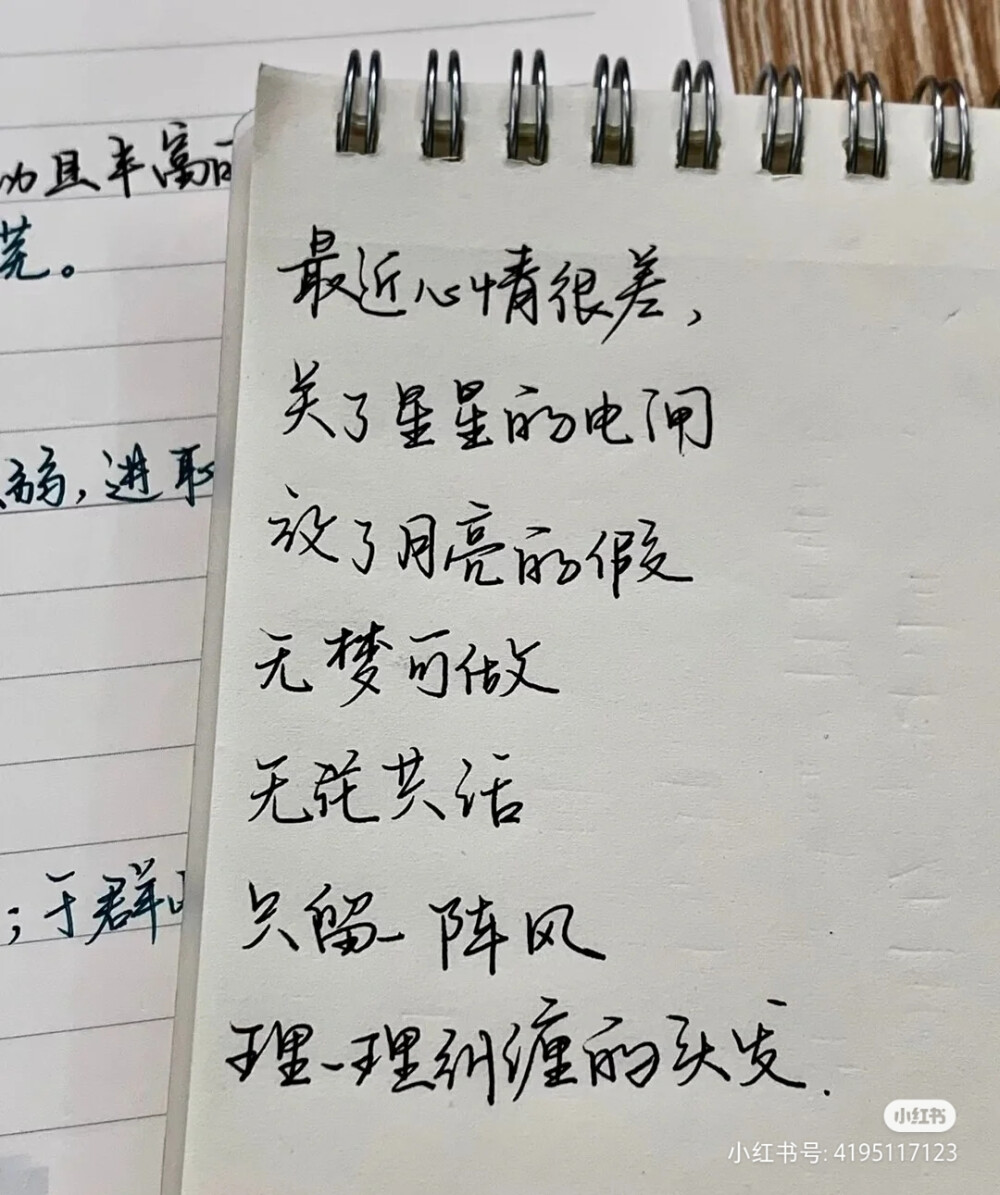 且丰富
芜。
弱,进取
;于群
最近心情很差,
关了星星的电闸
放了月亮的假
无梦可做
无共话
只留一阵风
理一理纠缠的头发.
小红书
小红书号: 4195117123